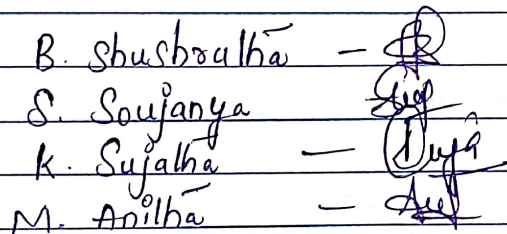 B. Shushralhā –
S. Soujanya
K. Sujalhā –
M. Anilhā –